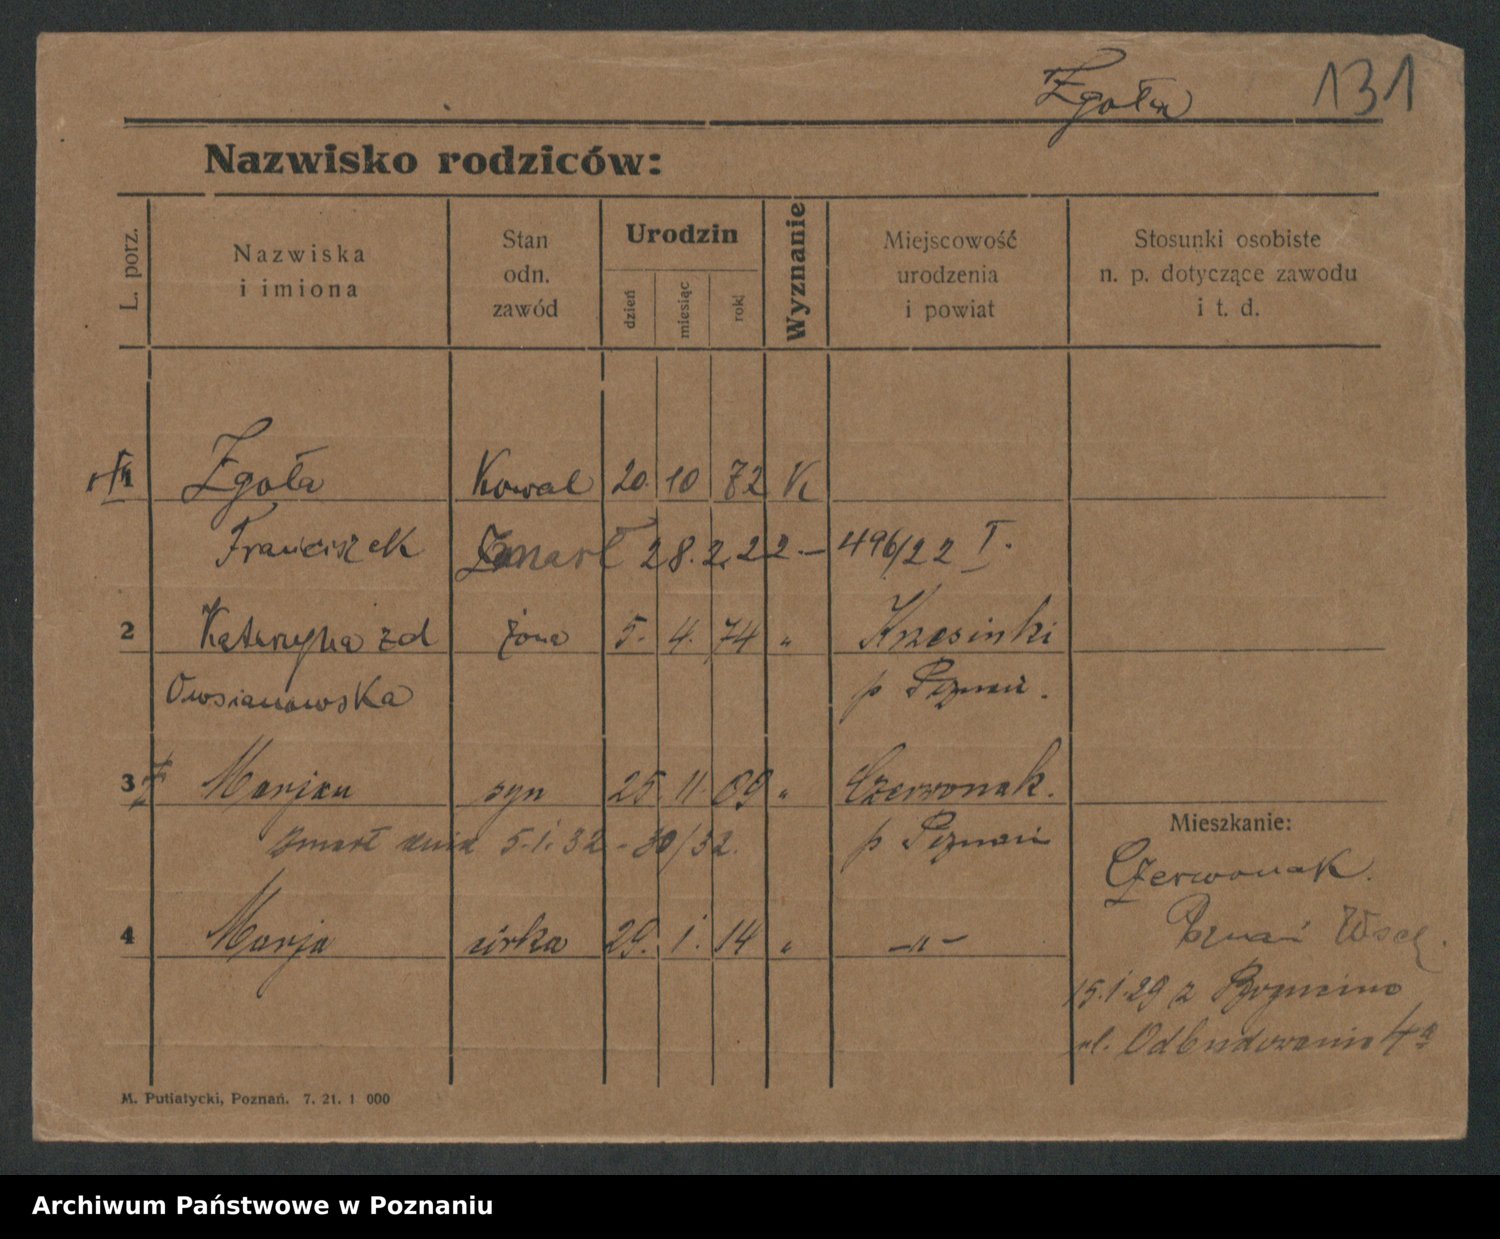 Zgoła 131
Nazwisko rodziców:
L. porz.
Nazwiska
i imiona
Stan
odn.
zawód
Urodzin
dzień
miesiąc
rok
Wyznanie
Miejscowość
urodzenia
i powiat
Stosunki osobiste
n. p. dotyczące zawodu
i t. d.
1 Zgoła Kowal 20. 10 72 K
Franciszek Zmarł 28.2.22.— 496/22 I.
2 Katarzyna zd żona 5. 4. 74 " Krzesinki
Owsianowska p Poznań.
3 Marjan syn 25. 11. 09 " Czerwonak.
zmarł dnia 5.1.32 - 30/32. p Poznań
4 Marja córka 29. 1. 14 " —"—
Mieszkanie:
Czerwonak.
Poznań Wsch.
15.1.29 z
ul. Odbudowania 4a
M. Putiatycki, Poznań. 7. 21. 1 000
Archiwum Państwowe w Poznaniu